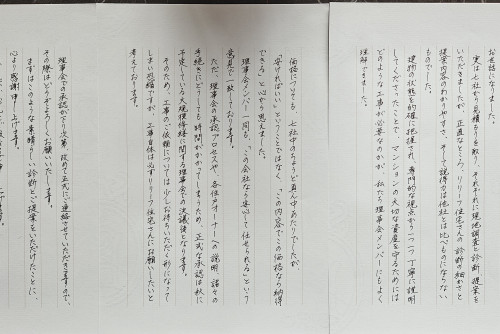 お世話になりました。
実は七社から見積もりを取り、それぞれに現地調査と診断、提案を
いただきましたが、正直なところ、リリーフ住宅さんの診断の細かさと
提案内容のわかりやすさ、そして説得力は他社とは比べものにならない
ものでした。
建物の状態を的確に把握され、専門的な視点から一つ一つ丁寧に説明
してくださったことで、マンションの大切な資産を守るためには
どのような工事が必要なのかが、私たち理事会メンバーにもよく
理解できました。
価格についても、七社中のちょうど真ん中あたりでしたが、
「安ければいい」ということではなく、「この内容でこの価格なら納得
できる」と心から思えました。
理事会メンバー一同も、「この会社なら安心して任せられる」という
意見で一致しております。
ただ、理事会の承認プロセスや、各住戸オーナーへの説明、諸々の
手続きにどうしても時間がかかってしまうため、正式な承認は秋に
予定している大規模修繕に関する理事会での決議後となります。
そのため、工事のご依頼については少しお待ちいただく形になって
しまい恐縮ですが、工事自体は必ずリリーフ住宅さんにお願いしたいと
考えております。
理事会での承認が下り次第、改めて正式にご連絡させていただきますので、
その際はどうぞよろしくお願いいたします。
まずはこのような素晴らしい診断とご提案をいただけたことに、
心より感謝申し上げます。